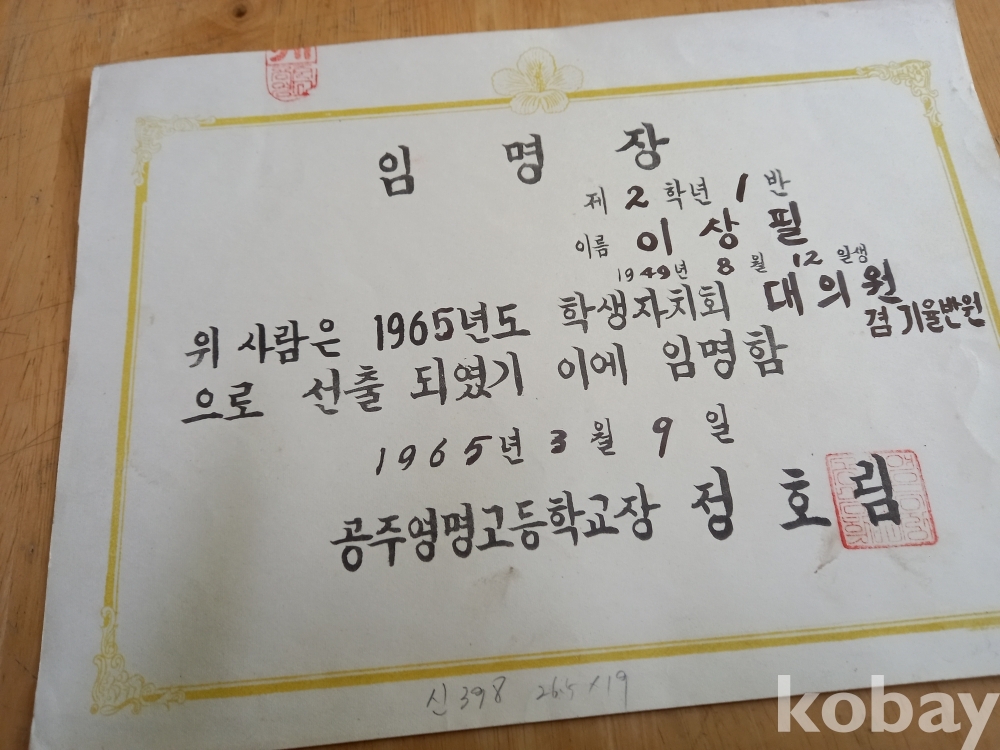 임명장
제 2 학년 1 반
이름 이상필
1949년 8월 12일생
위 사람은 1965년도 학생자치회 대의원
겸 기율반원
으로 선출 되였기 이에 임명함
1965년 3월 9일
공주영명고등학교장 정호림
신398 26.5×19
kobay